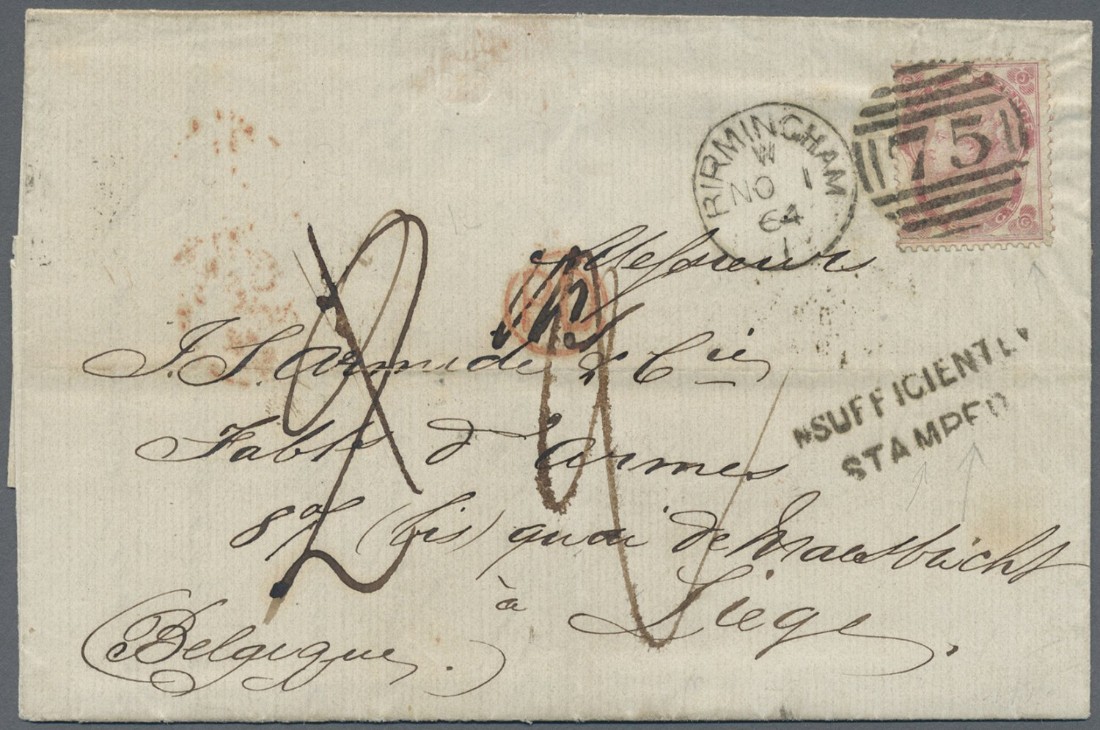 BIRMINGHAM
W
NO 1
64
75
Messieurs
J. S. Armide & Cie
Fabts d'armes
87 (bis) quai de Maestricht
à Liege
(Belgique)
INSUFFICIENTLY
STAMPED
PD